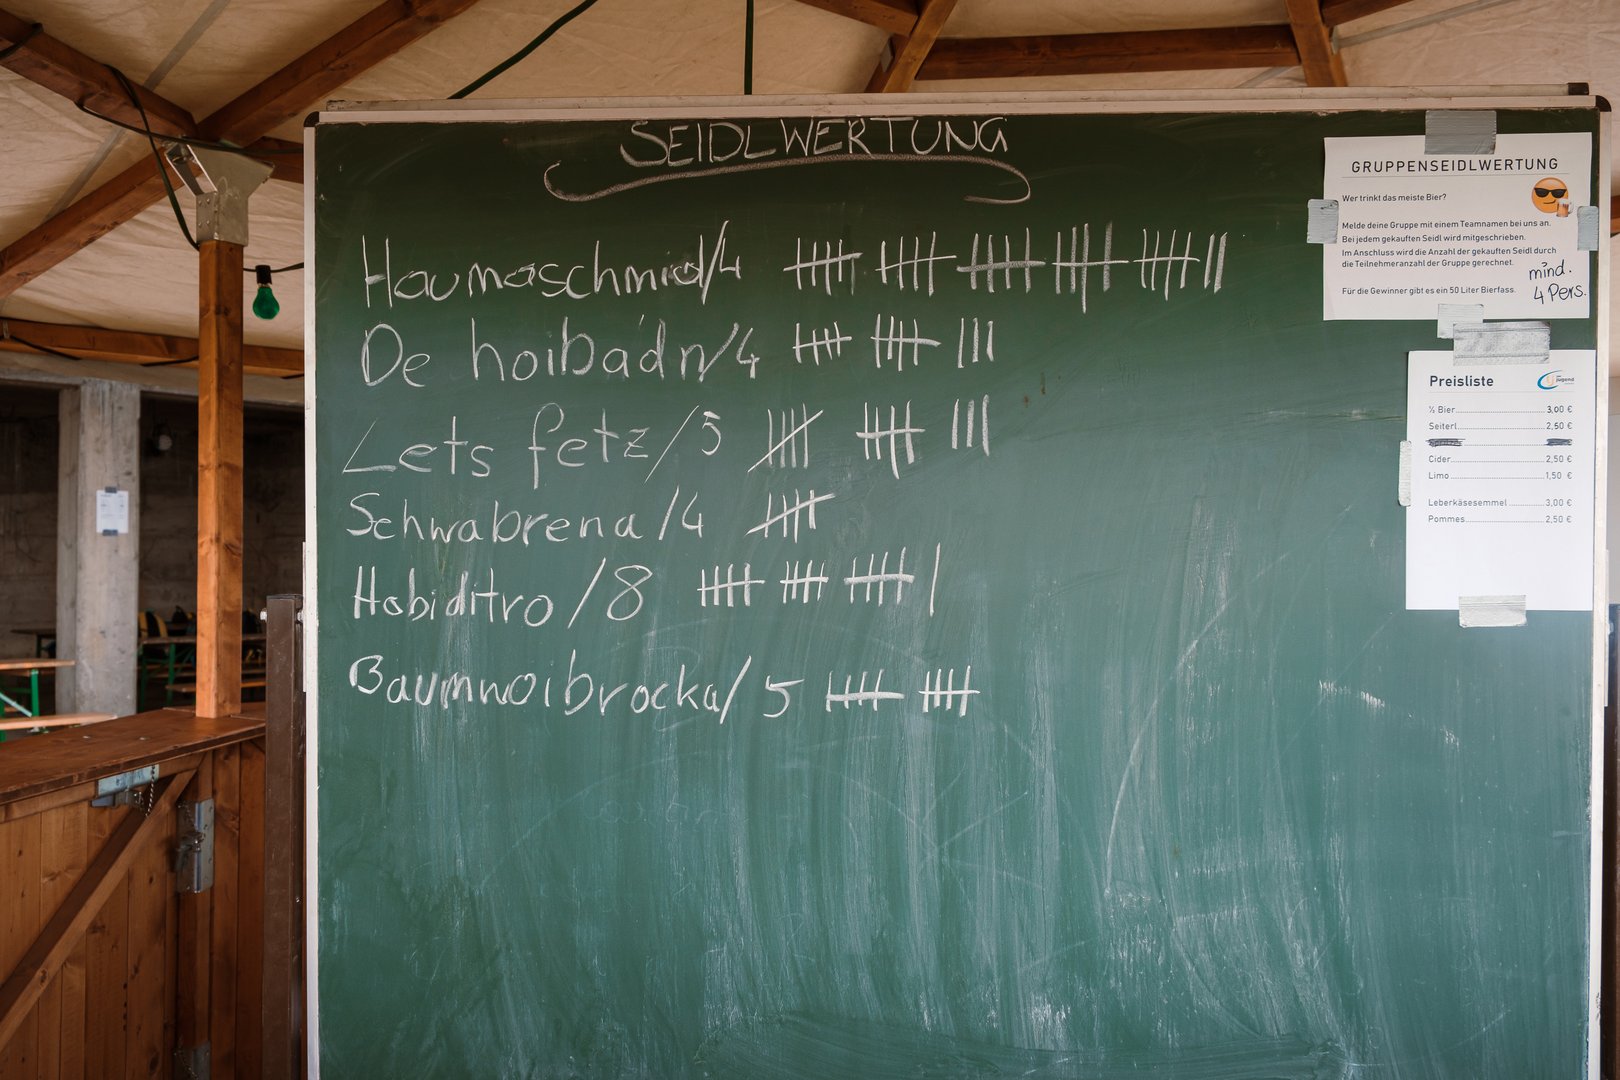 SEIDLWERTUNG
Haumaschmid/4
De hoibadn/4
Lets fetz/5
Schwabrena/4
Habiditro/8
Baumwoibrocka/5
GRUPPENSEIDLWERTUNG
Wer trinkt das meiste Bier?
Melde deine Gruppe mit einem Teamnamen bei uns an.
Bei jedem gekauften Seidl wird mitgeschrieben.
Im Anschluss wird die Anzahl der gekauften Seidl durch
die Teilnehmeranzahl der Gruppe gerechnet.
Für die Gewinner gibt es ein 50 Liter Bierfass.
mind.
4 Pers.
Preisliste
jugend
½ Bier 3,00 €
Seiterl 2,50 €
Cider 2,50 €
Limo 1,50 €
Leberkäsesemmel 3,00 €
Pommes 2,50 €